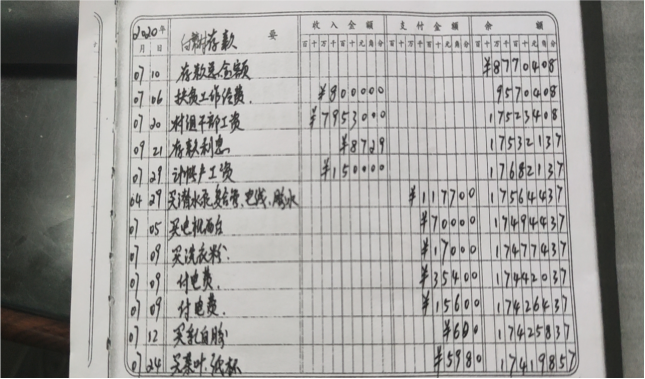 2020年 付村存款 要 收入金额 支付金额 余额
月 日 百十万千百十元角分 百十万千百十元角分 百十万千百十元角分
07 10 存款总金额 ¥8770408
07 06 扶贫工作经费. ¥800000 9570408
07 20 村组干部工资 ¥7953000 17523408
09 21 存款利息 ¥8729 17532137
07 29 计生户工资 ¥150000 17682137
04 29 买潜水泵.复合管,电线,胶水 ¥117700 17564437
07 05 买电机两台 ¥70000 17494437
07 09 买洗衣粉. ¥17000 17477437
07 09 付电费. ¥35400 17442037
07 09 付电费. ¥15600 17426437
07 12 买乳白胶 ¥600 17425837
07 24 买茶叶.纸杯 ¥5980 17419857